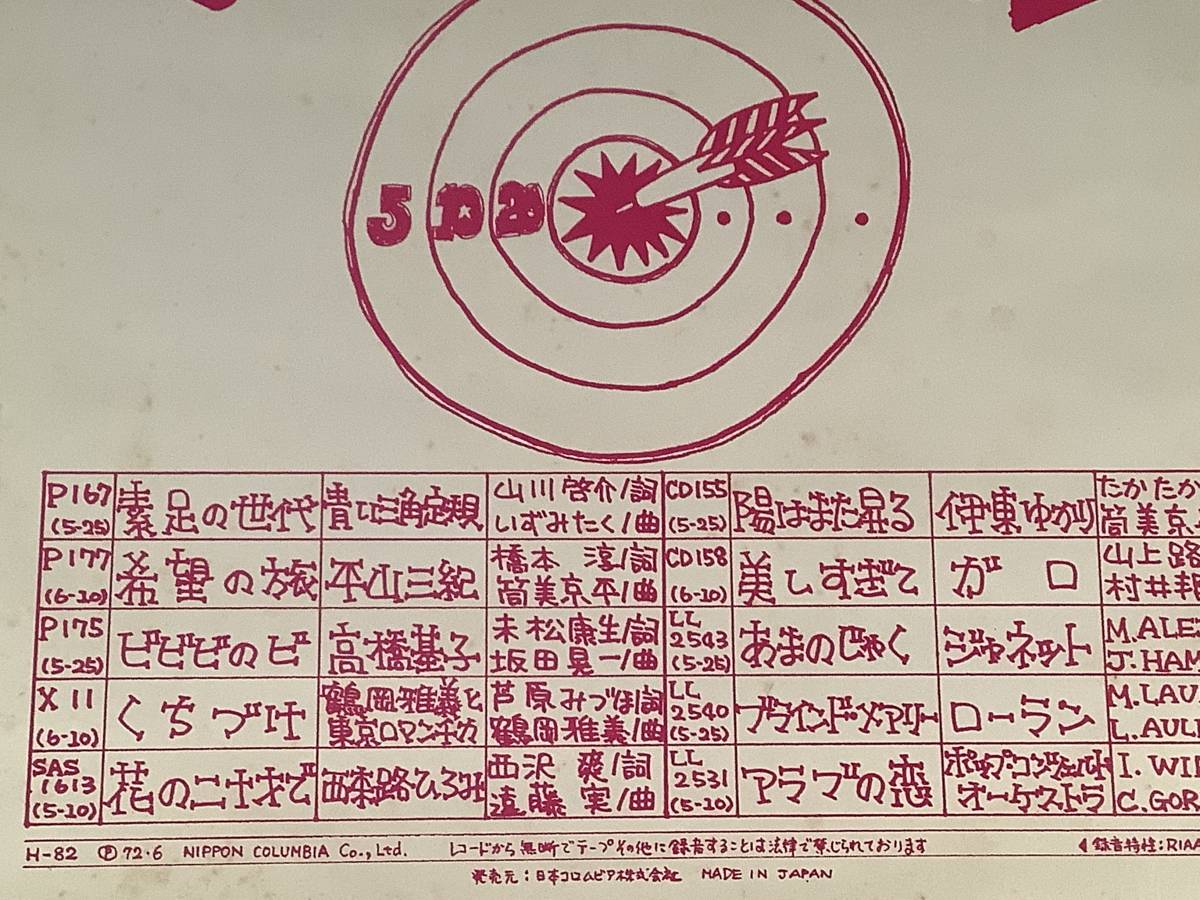 5 10 20
P167 (5-25) 素足の世代 貴three角定規 山川啓介/詞 いずみたく/曲 CD155 (5-25) 陽はまた昇る 伊東ゆかり たかたか 筒美京
P177 (6-10) 希望の旅 平山三紀 橋本 淳/詞 筒美京平/曲 CD158 (6-10) 美しすぎて ガロ 山上路 村井邦
P175 (5-25) ビビビのビ 高橋基子 末松康生/詞 坂田晃一/曲 LL 2543 (5-25) あまのじゃく ジャネット M.ALE J.HAM
X 11 (6-10) くちづけ 鶴岡雅義と 東京ロマンチカ 芦原みづほ/詞 鶴岡雅義/曲 LL 2540 (5-25) ブラインド・メアリー ローラン M.LAU L.AUL
SAS 1613 (5-10) 花の二十才で 西来路ひろみ 西沢 爽/詞 遠藤 実/曲 LL 2531 (5-10) アラブの恋 ポップ・コンサート オーケストラ I.WI C.GOR
H-82 Ⓟ72・6 NIPPON COLUMBIA Co., Ltd. レコードから無断でテープその他に録音することは法律で禁じられております ◀録音特性:RIAA
発売元:日本コロムビア株式会社 MADE IN JAPAN